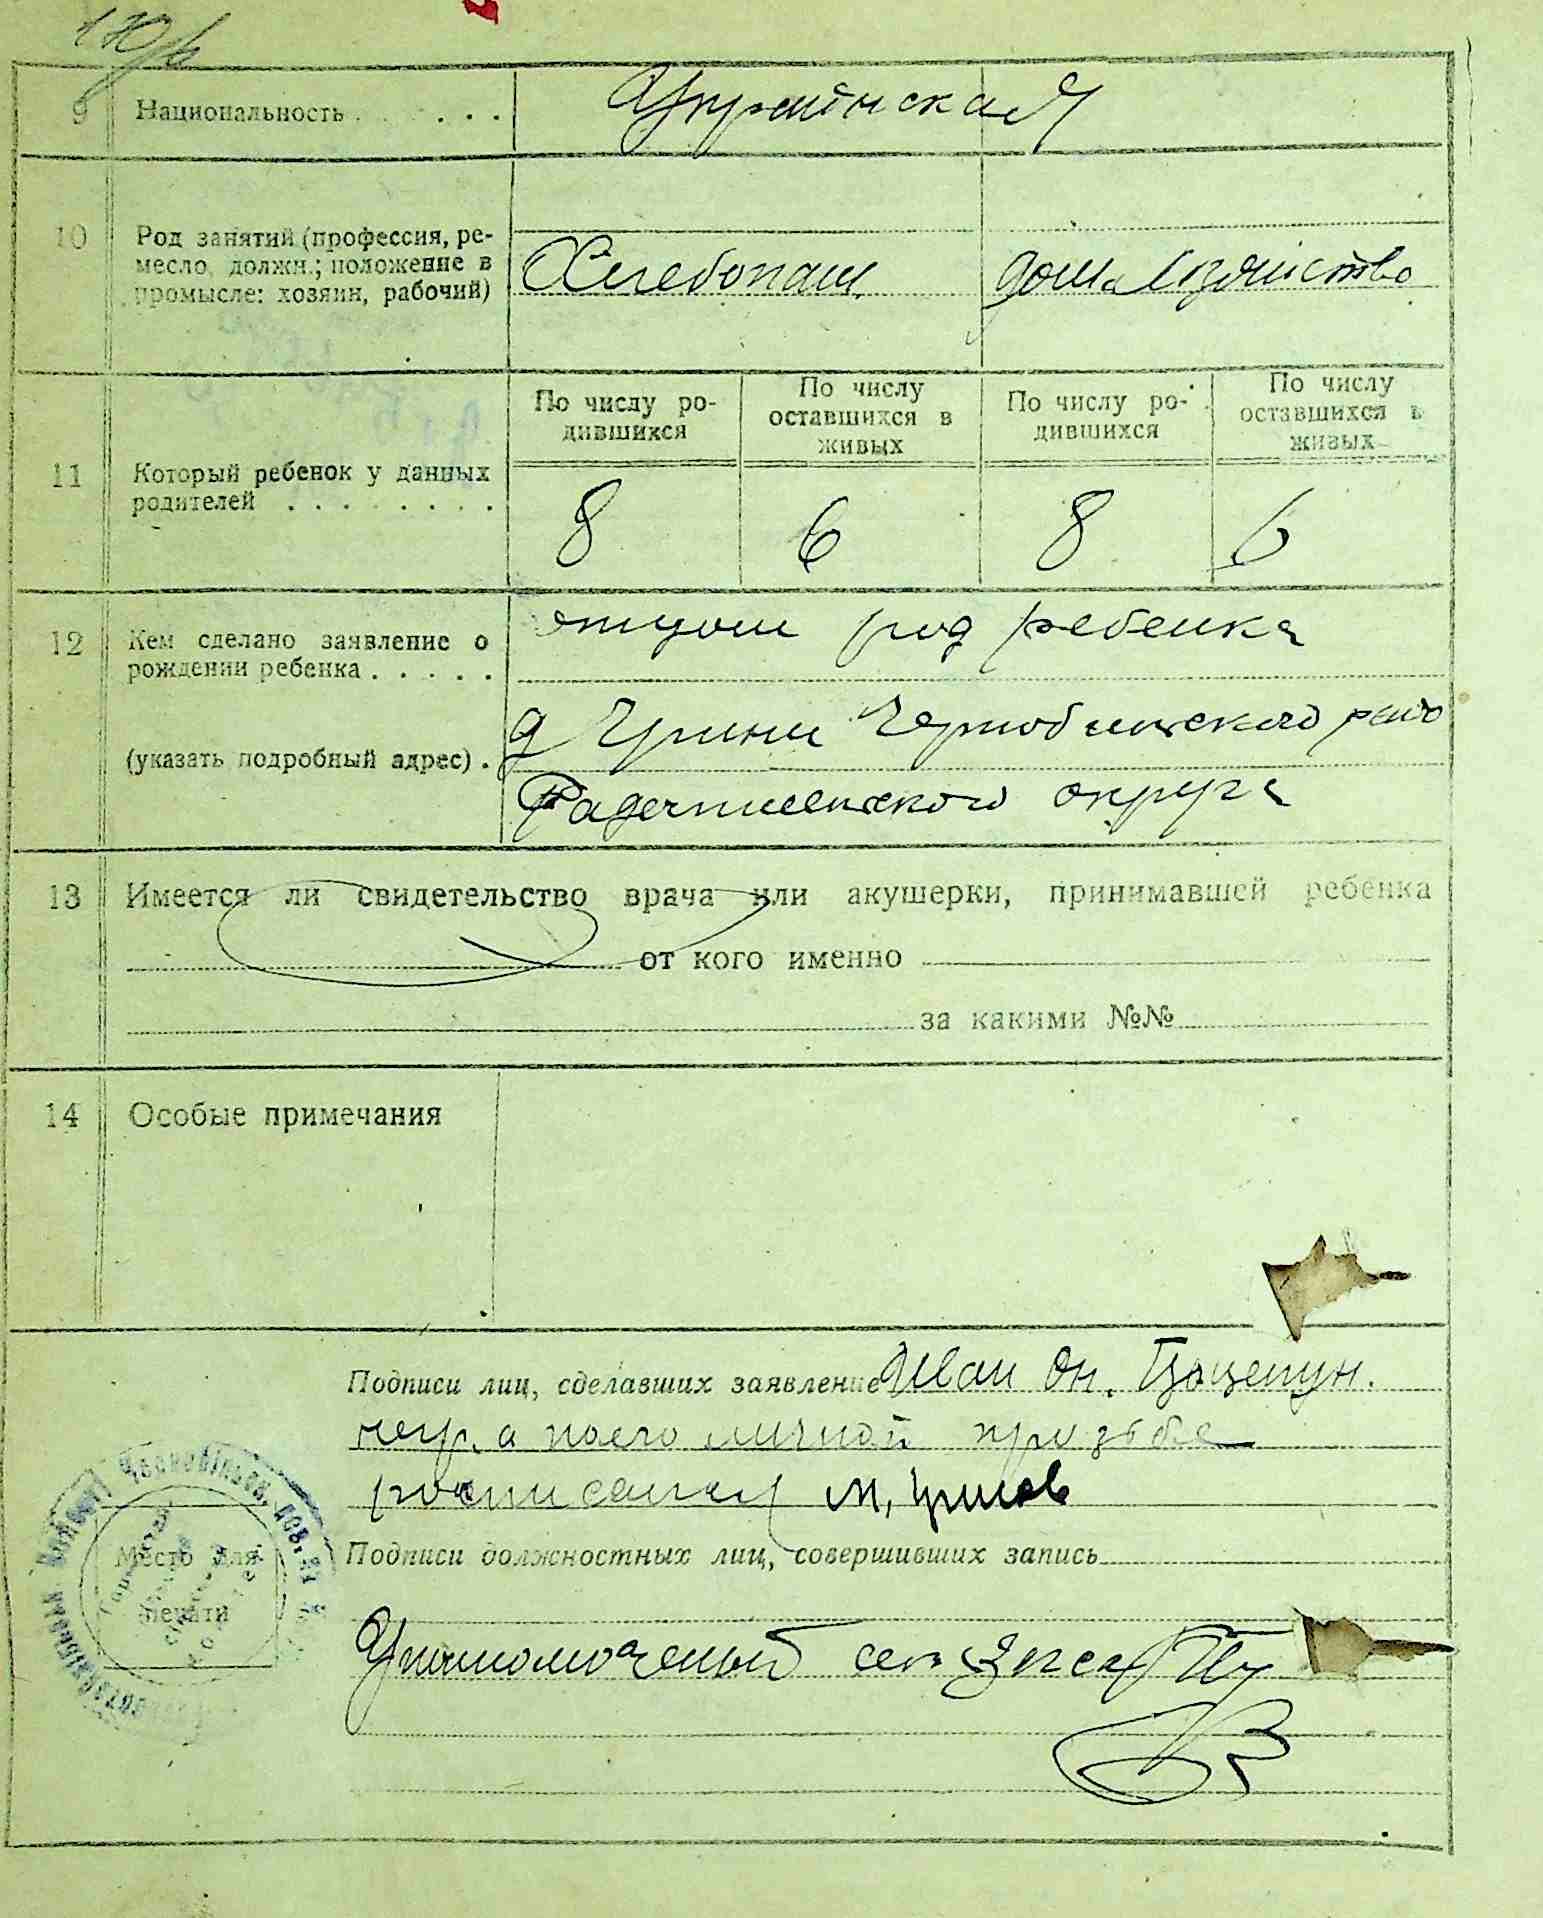 9 Национальность . . . . Украинская
10 Род занятий (профессия, ре-
месло, должн.; положение в
промысле: хозяин, рабочий) Хлебопаш. дом. хозяйство
По числу ро-
дившихся
По числу
оставшихся в
живых
По числу ро-
дившихся
По числу
оставшихся в
живых
11 Который ребенок у данных
родителей . . . . . . . .
8 6 8 6
12 Кем сделано заявление о
рождении ребенка . . . . . отцом род ребенка
(указать подробный адрес) . д Чернобыльского
округа
13 Имеется ли свидетельство врача или акушерки, принимавшей ребенка
от кого именно
за какими №№
14 Особые примечания
Подписи лиц, сделавших заявление Иван Он.
негр. а по его личной прозьбе
росписался М,
Подписи должностных лиц, совершивших запись
Место для
печати
Уполномоченый